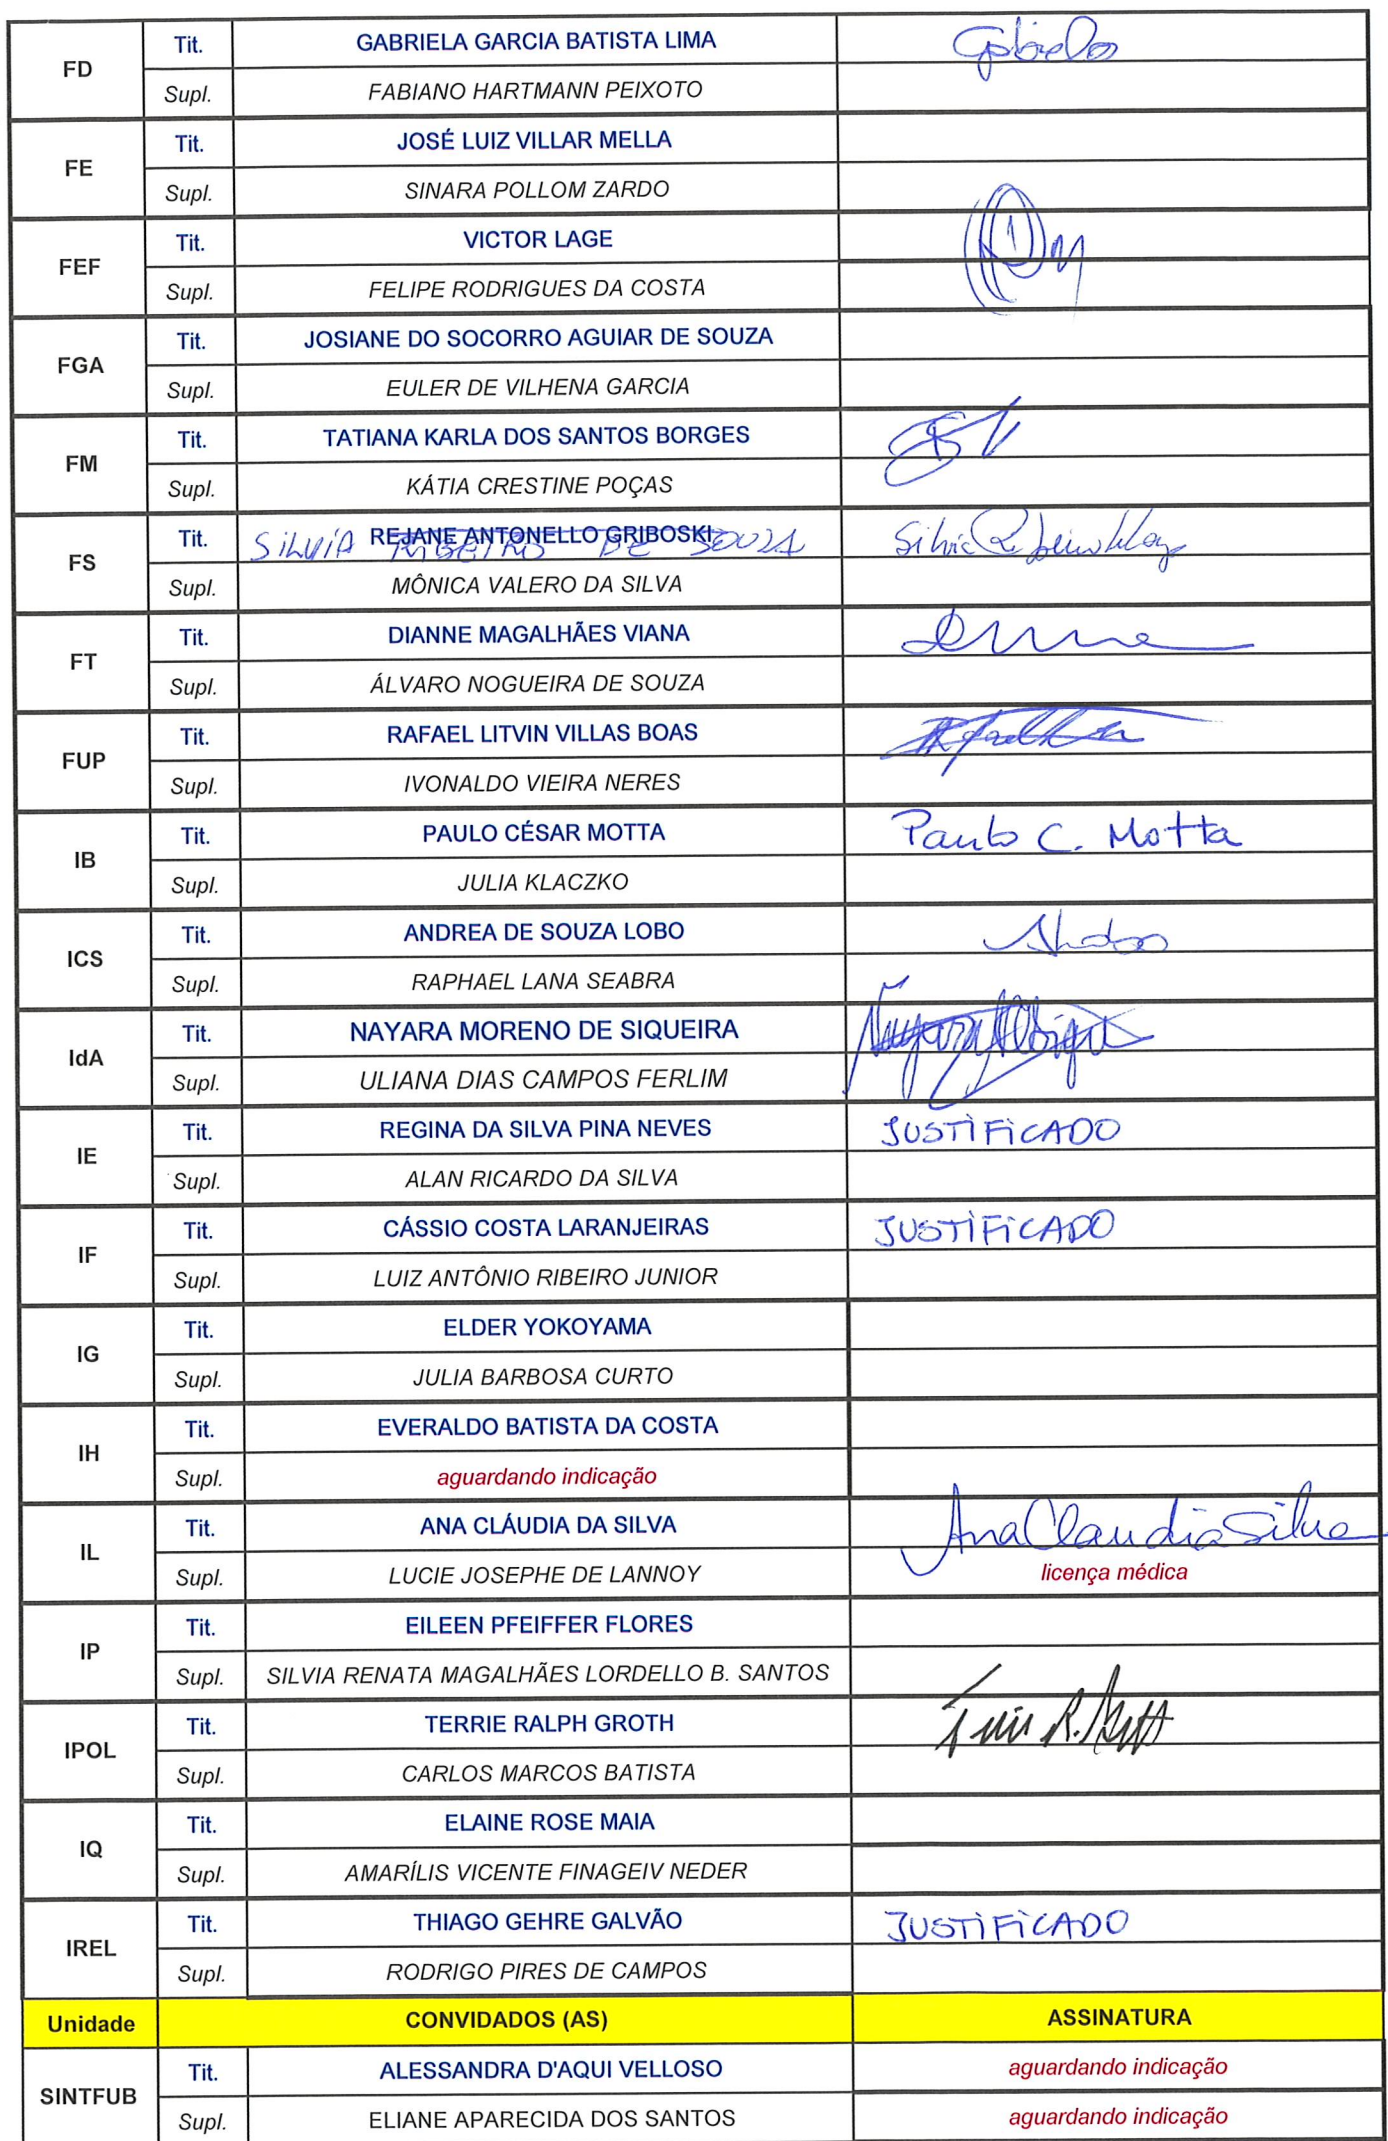 FD Tit. GABRIELA GARCIA BATISTA LIMA
Supl. FABIANO HARTMANN PEIXOTO
FE Tit. JOSÉ LUIZ VILLAR MELLA
Supl. SINARA POLLOM ZARDO
FEF Tit. VICTOR LAGE
Supl. FELIPE RODRIGUES DA COSTA
FGA Tit. JOSIANE DO SOCORRO AGUIAR DE SOUZA
Supl. EULER DE VILHENA GARCIA
FM Tit. TATIANA KARLA DOS SANTOS BORGES
Supl. KÁTIA CRESTINE POÇAS
FS Tit. REJANE ANTONELLO GRIBOSKI
SILVIA RIBEIRO DE SOUZA
Supl. MÔNICA VALERO DA SILVA
FT Tit. DIANNE MAGALHÃES VIANA
Supl. ÁLVARO NOGUEIRA DE SOUZA
FUP Tit. RAFAEL LITVIN VILLAS BOAS
Supl. IVONALDO VIEIRA NERES
IB Tit. PAULO CÉSAR MOTTA Paulo C. Motta
Supl. JULIA KLACZKO
ICS Tit. ANDREA DE SOUZA LOBO
Supl. RAPHAEL LANA SEABRA
IdA Tit. NAYARA MORENO DE SIQUEIRA
Supl. ULIANA DIAS CAMPOS FERLIM
IE Tit. REGINA DA SILVA PINA NEVES JUSTIFICADO
Supl. ALAN RICARDO DA SILVA
IF Tit. CÁSSIO COSTA LARANJEIRAS JUSTIFICADO
Supl. LUIZ ANTÔNIO RIBEIRO JUNIOR
IG Tit. ELDER YOKOYAMA
Supl. JULIA BARBOSA CURTO
IH Tit. EVERALDO BATISTA DA COSTA
Supl. aguardando indicação
IL Tit. ANA CLÁUDIA DA SILVA Ana Claudia Silva
Supl. LUCIE JOSEPHE DE LANNOY licença médica
IP Tit. EILEEN PFEIFFER FLORES
Supl. SILVIA RENATA MAGALHÃES LORDELLO B. SANTOS
IPOL Tit. TERRIE RALPH GROTH
Supl. CARLOS MARCOS BATISTA
IQ Tit. ELAINE ROSE MAIA
Supl. AMARÍLIS VICENTE FINAGEIV NEDER
IREL Tit. THIAGO GEHRE GALVÃO JUSTIFICADO
Supl. RODRIGO PIRES DE CAMPOS
Unidade CONVIDADOS (AS) ASSINATURA
SINTFUB Tit. ALESSANDRA D'AQUI VELLOSO aguardando indicação
Supl. ELIANE APARECIDA DOS SANTOS aguardando indicação